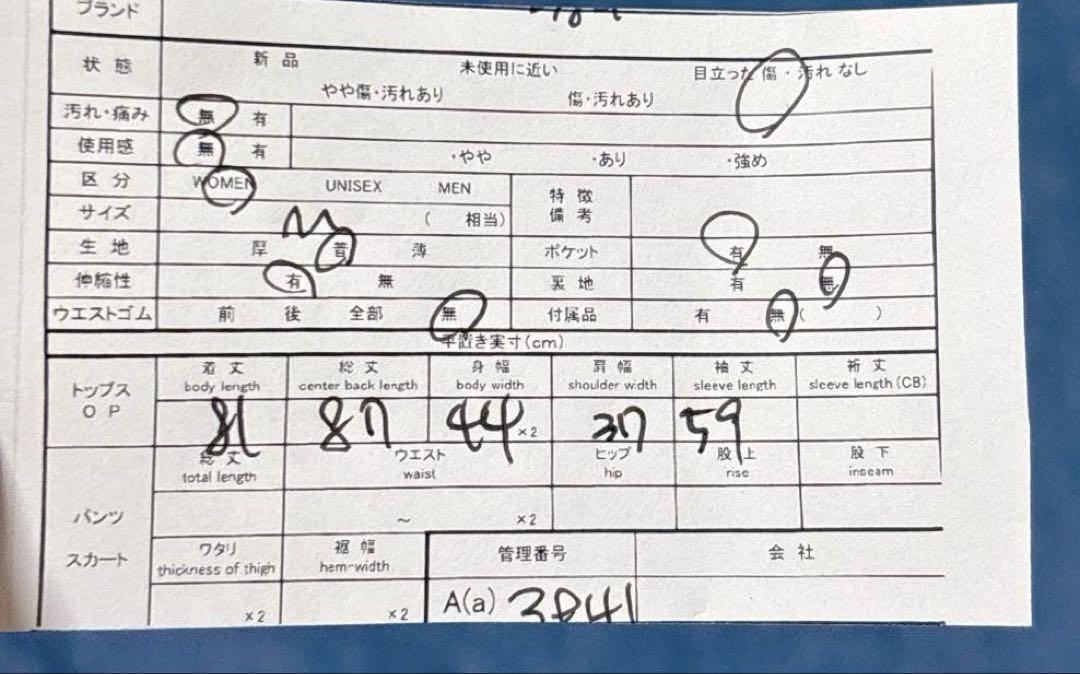 ブランド
状態 新品 未使用に近い 目立った傷・汚れなし
やや傷・汚れあり 傷・汚れあり
汚れ・痛み 無 有
使用感 無 有 ・やや ・あり ・強め
区分 WOMEN UNISEX MEN 特徴
備考
サイズ M ( 相当)
生地 厚 普 薄 ポケット 有 無
伸縮性 有 無 裏地 有 無
ウエストゴム 前 後 全部 無 付属品 有 無( )
平置き実寸(cm)
トップス
OP
着丈 総丈 身幅 肩幅 袖丈 裄丈
body length center back length body width shoulder width sleeve length sleeve length (CB)
81 87 44 ×2 37 59
総丈 ウエスト ヒップ 股上 股下
total length waist hip rise inseam
パンツ ～ ×2
スカート ワタリ 裾幅 管理番号 会社
thickness of thigh hem-width
×2 ×2 A(a) 3841